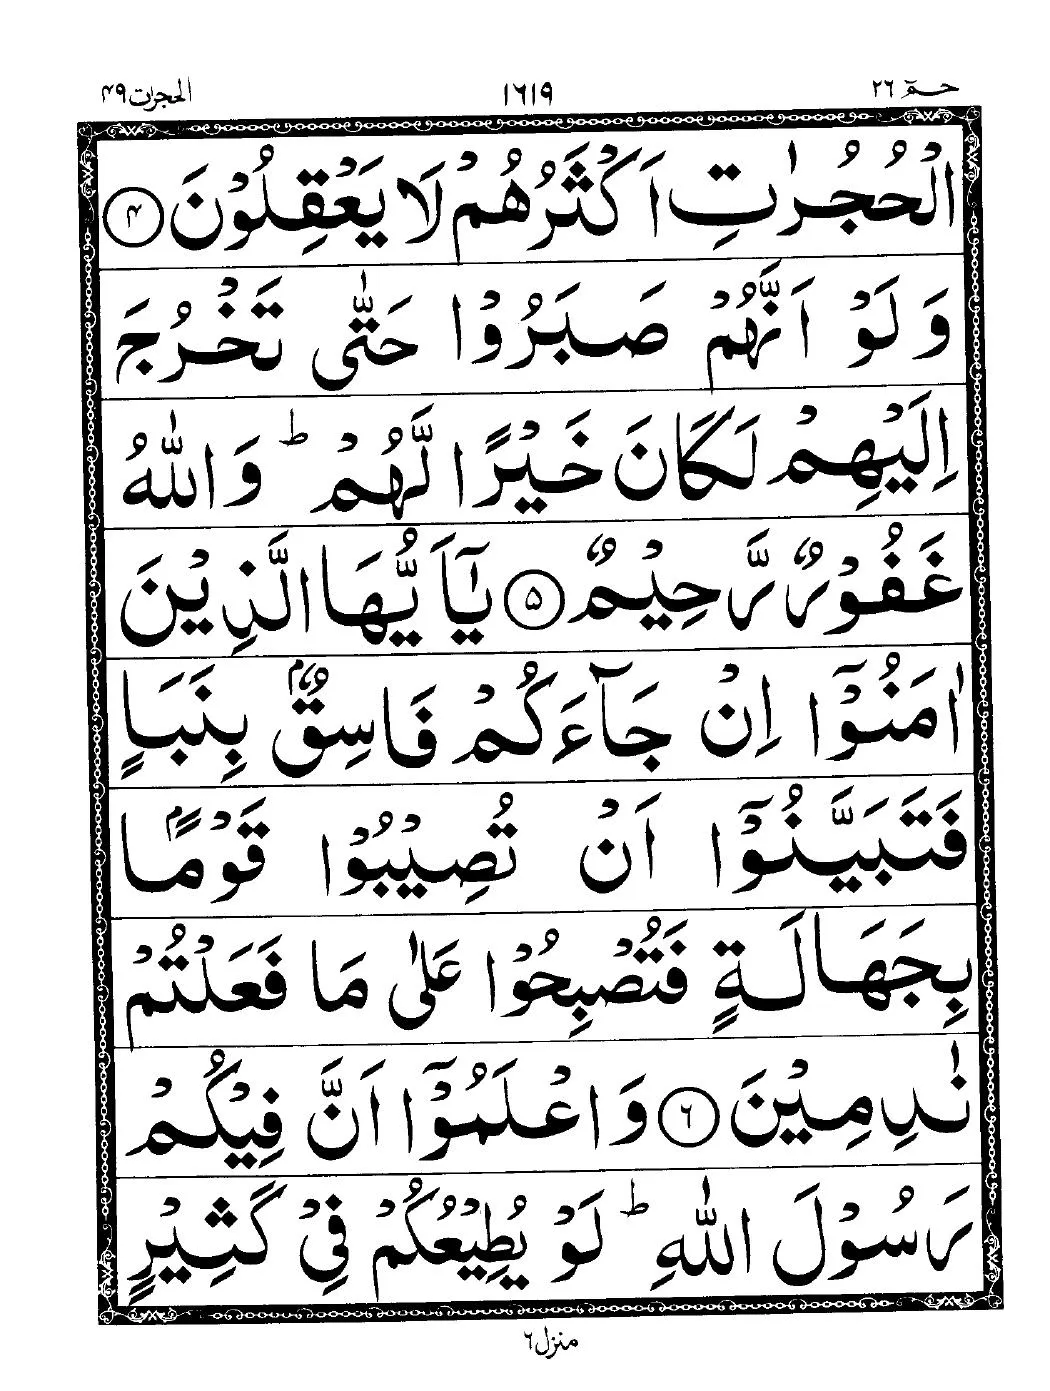 حٰمٓ ٢٦
١٦١٩
الحجرات ٤٩
الْحُجُرٰتِ اَكْثَرُهُمْ لَا يَعْقِلُوْنَ ۴
وَ لَوْ اَنَّهُمْ صَبَرُوْا حَتّٰى تَخْرُجَ
اِلَيْهِمْ لَكَانَ خَيْرًا لَّهُمْ ؕ وَاللّٰهُ
غَفُوْرٌ رَّحِيْمٌ ۵ يٰۤاَيُّهَا الَّذِيْنَ
اٰمَنُوْۤا اِنْ جَآءَكُمْ فَاسِقٌۢ بِنَبَاٍ
فَتَبَيَّنُوْۤا اَنْ تُصِيْبُوْا قَوْمًۢا
بِجَهَالَةٍ فَتُصْبِحُوْا عَلٰى مَا فَعَلْتُمْ
نٰدِمِيْنَ ٦ وَاعْلَمُوْۤا اَنَّ فِيْكُمْ
رَسُوْلَ اللّٰهِ ؕ لَوْ يُطِيْعُكُمْ فِيْ كَثِيْرٍ
منزل ٦